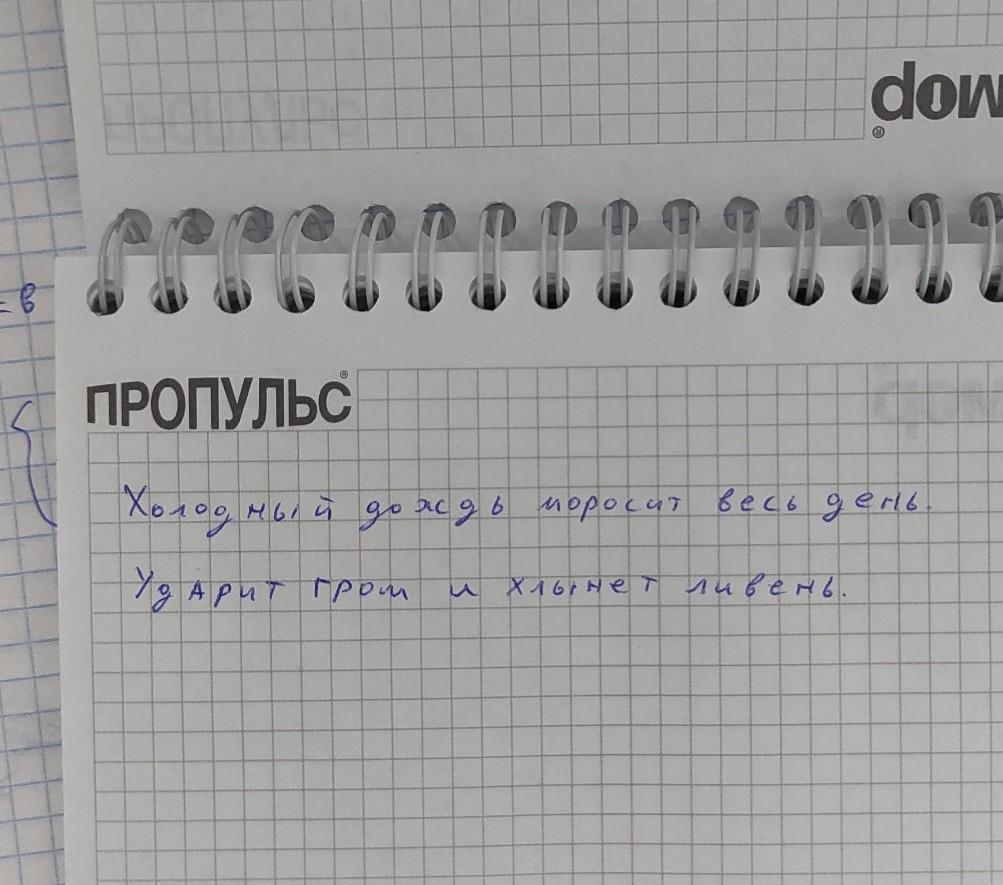 = в
ПРОПУЛЬС®
Холодный дождь моросит весь день.
Ударит гром и хлынет ливень.